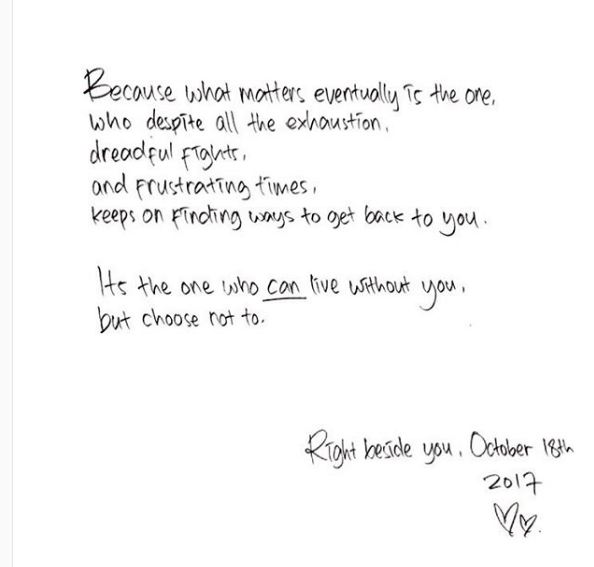 Because what matters eventually is the one,
who despite all the exhaustion,
dreadful fights,
and frustrating times,
keeps on finding ways to get back to you.
Its the one who can live without you,
but choose not to.
Right beside you, October 18th
2017